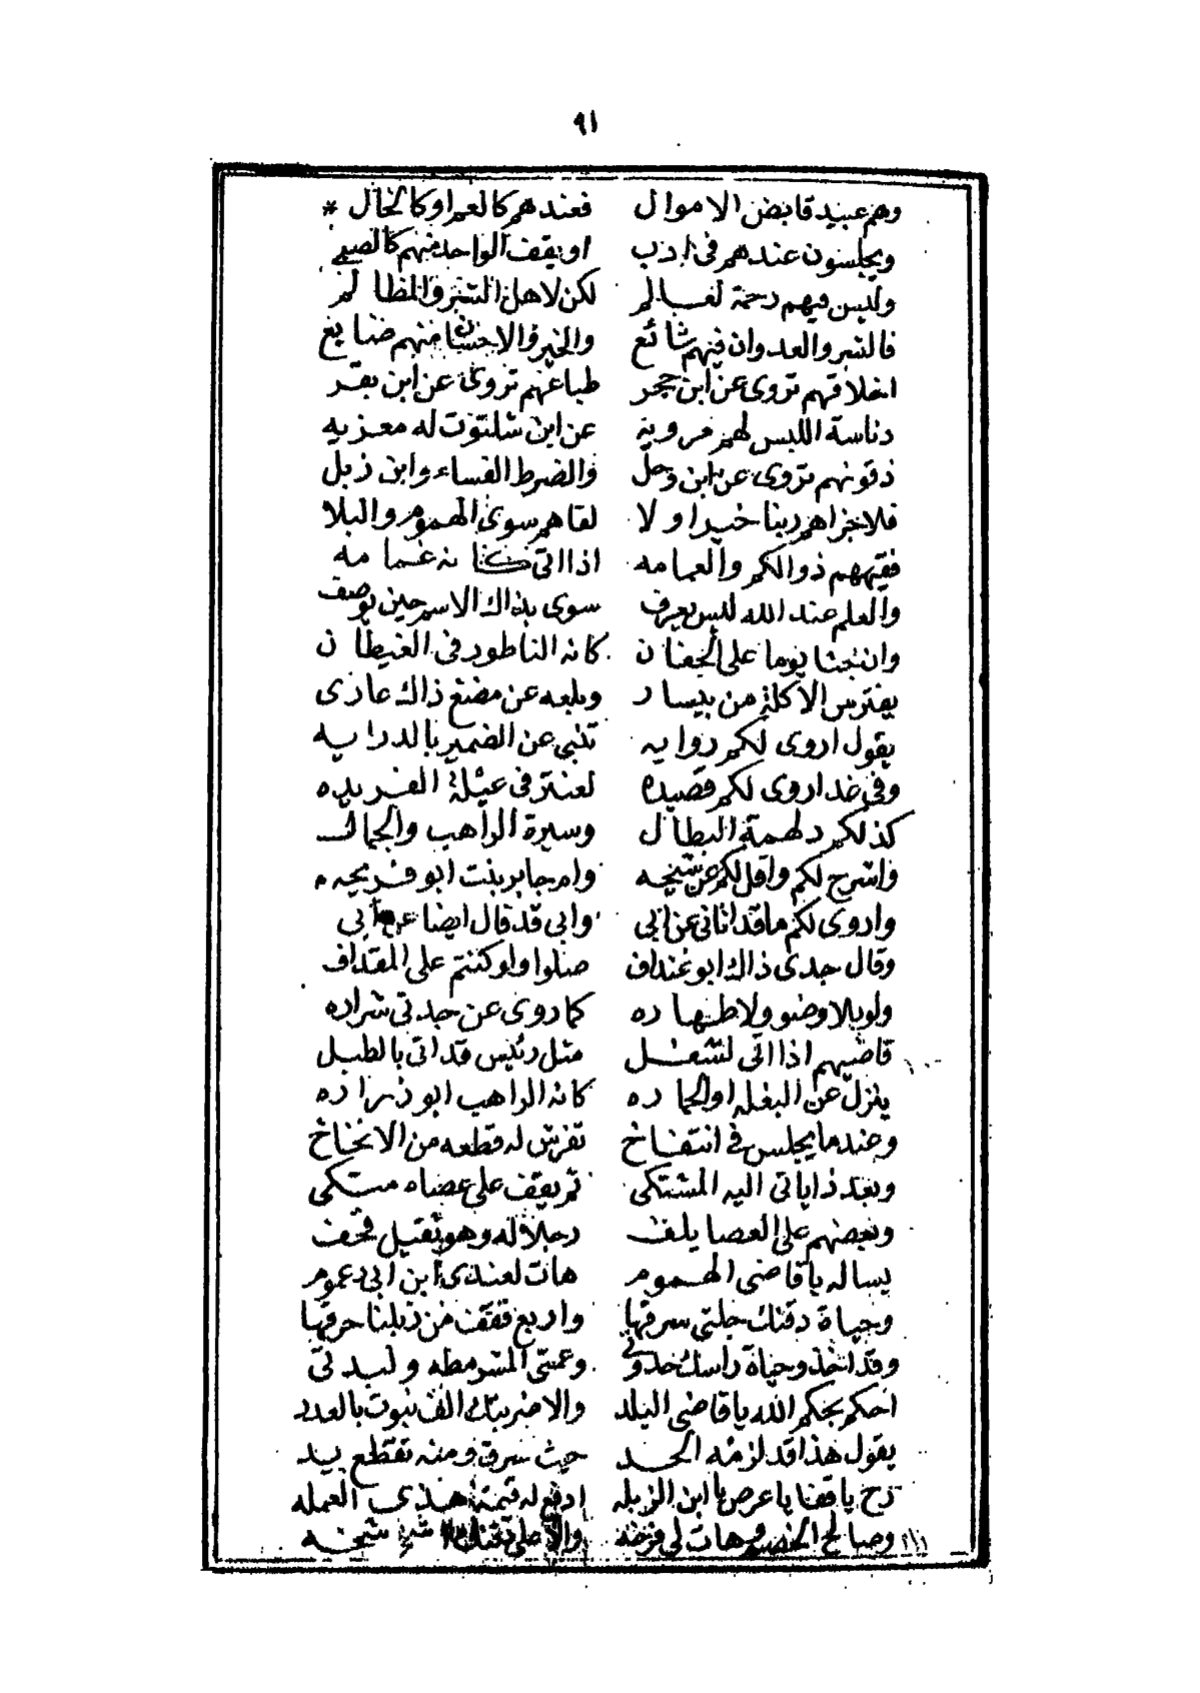 ٩١
وهم عبيد قابض الاموال فعندهم كالعم او كالخال *
ويجلسون عندهم فى ادب او يقف الواحد منهم كالصبى
وليس فيهم رحمة لعالم لكن لاهل الشر والمظالم
فالشر والعدوان فيهم شائع والخير والاحسان منهم ضايع
اخلاقهم تروى عن ابن حجر طباعهم تروى عن ابن بقر
دناسة اللبس لهم مرويه عن ابن شلتوت له معزيه
ذقونهم تروى عن ابن وحل والضرط الفساء وابن زبل
فلا جزاهم ربنا خيرا ولا لقاهم سوى الهموم والبلا
فقيههم ذو الكم والعمامه اذا اتى كانه غمامه
والعلم عند الله ليس يعرف سوى بذاك الاسم حين يوصف
وان جثا يوما على الجفنان كانه الناطور فى الغيطان
يفترس الاكلة من يسار وبلعه عن مضغ ذاك عارى
يقول اروى لكم روايه تنبى عن الضمير بالدرايه
وفى غد اروى لكم قصيده لعنتر فى عبلة الفريده
كذلكم دلهمة البطال وسيرة الراهب والجمال
واشرح لكم واقل لكم عن شيحه وام جابر بنت ابو فريحه
واروى لكم ما قد اتانى عن ابى وابى قد قال ايضا عن ابى
وقال جدى ذاك ابو غنداف صلوا ولو كنتم على المقداف
ولو بلا وضو ولا طهاره كما روى عن جدتى شراره
قاضيهم اذا اتى لشغل مثل رئيس قد اتى بالطبل
ينزل عن البغله او الحماره كانه الراهب ابو زراره
وعندما يجلس فى انتفاخ تفرش له قطعه من الانخاخ
وبعد ذا ياتى اليه المشتكى ثم يقف على عصاه متكى
وبعضهم على العصا يلف رجلا له وهو ثقيل قحف
يساله يا قاضى الهموم هات لعندى ابن ابى دعموم
وحياة دقنك جلتى سرقها واربع قفف من زبلنا حرقها
وقد اخذ وحياة راسك خدونى وعمتى المشرمطه ولبدتى
احكم بحكم الله يا قاضى البلد والا ضربتك الف نبوت بالعدد
يقول هذا قد لزمه الحد حيث سرق ومنه تقطع يد
رح يا قفا يا عرص يا ابن الزبله ادفع له قيمة هذى العمله
وصالح الخصم وهات لى فرخه والا على شيخه